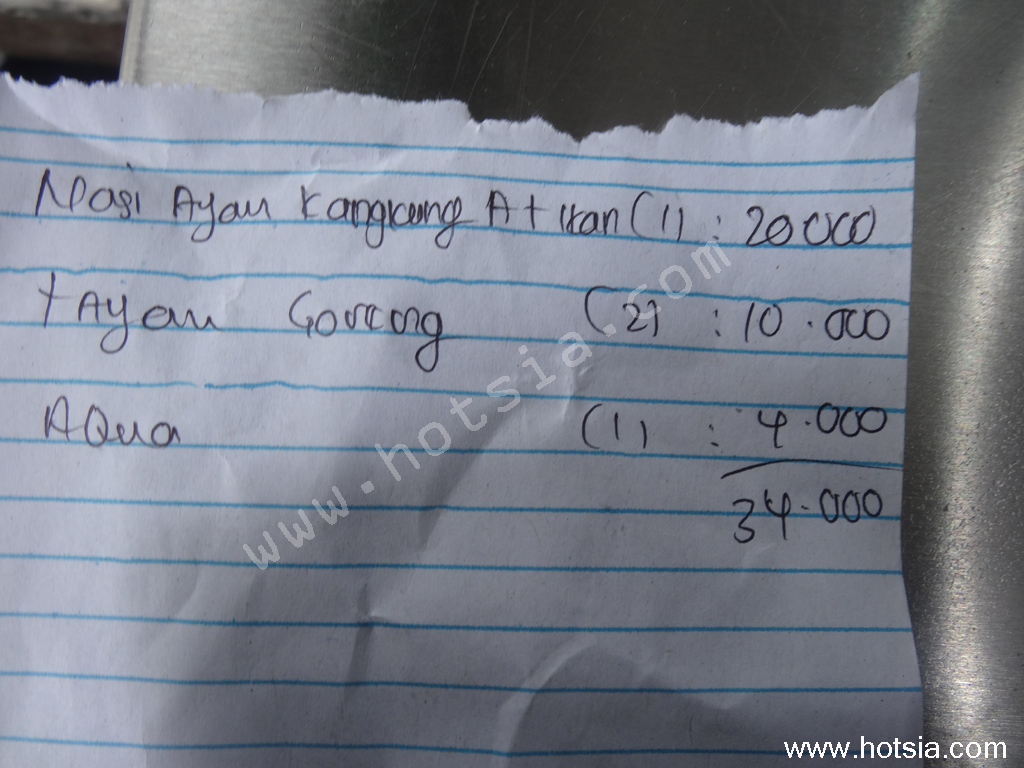 Nasi Ayam Kangkung A+ Ikan (1) : 20000
+ Ayam Goreng (2) : 10.000
AQua (1) : 4.000
34.000
www.hotsia.com
www.hotsia.com